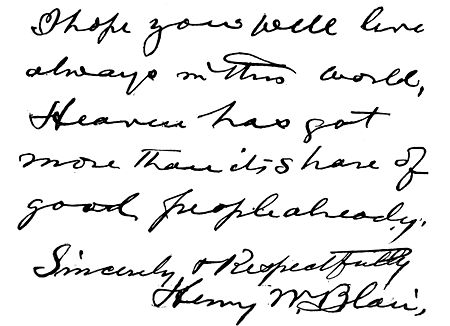 I hope you will live
always in this world,
Heaven has got
more than its share of
good people already.
Sincerely & Respectfully
Henry W. Blair,